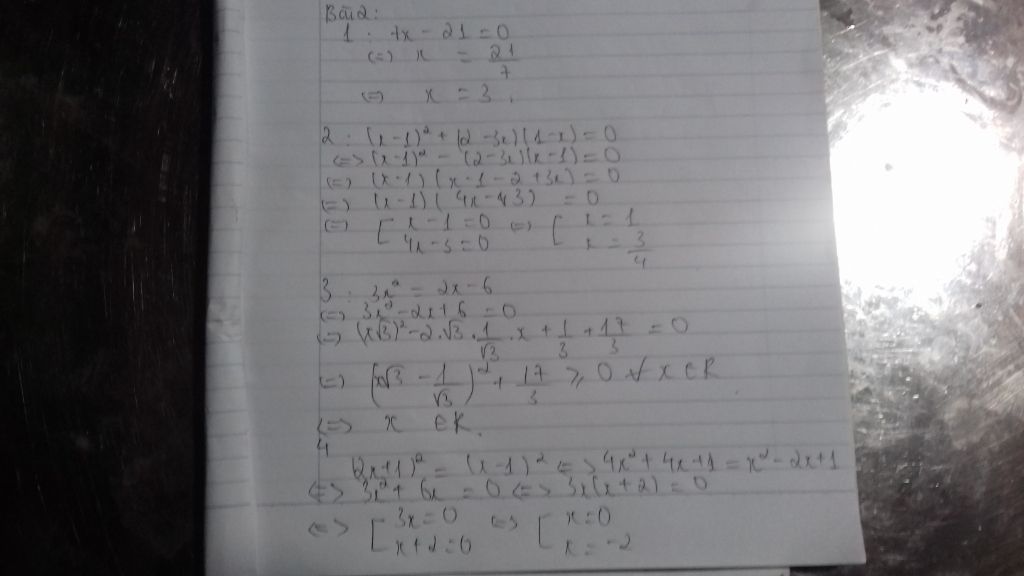 Bài 2:
1 : 7x - 21 = 0
<=> x = 21/7
<=> x = 3.
2 : (x-1)² + (2-3x)(1-x) = 0
<=> (x-1)² - (2-3x)(x-1) = 0
<=> (x-1)(x-1-2+3x) = 0
<=> (x-1)(4x-43) = 0
<=> [ x-1=0 <=> [ x = 1
4x-3=0 x = 3/4
3 : 3x² = 2x-6
<=> 3x²-2x+6 = 0
<=> (x√3)² - 2.√3.1/√3.x + 1/3 + 17/3 = 0
<=> (x√3 - 1/√3)² + 17/3 ⩾ 0 ∀ x ∈ R
<=> x ∈ R.
4
(2x+1)² = (x-1)² <=> 4x²+4x+1 = x²-2x+1
<=> 3x²+6x = 0 <=> 3x(x+2) = 0
<=> [ 3x=0 <=> [ x=0
x+2=0 x=-2